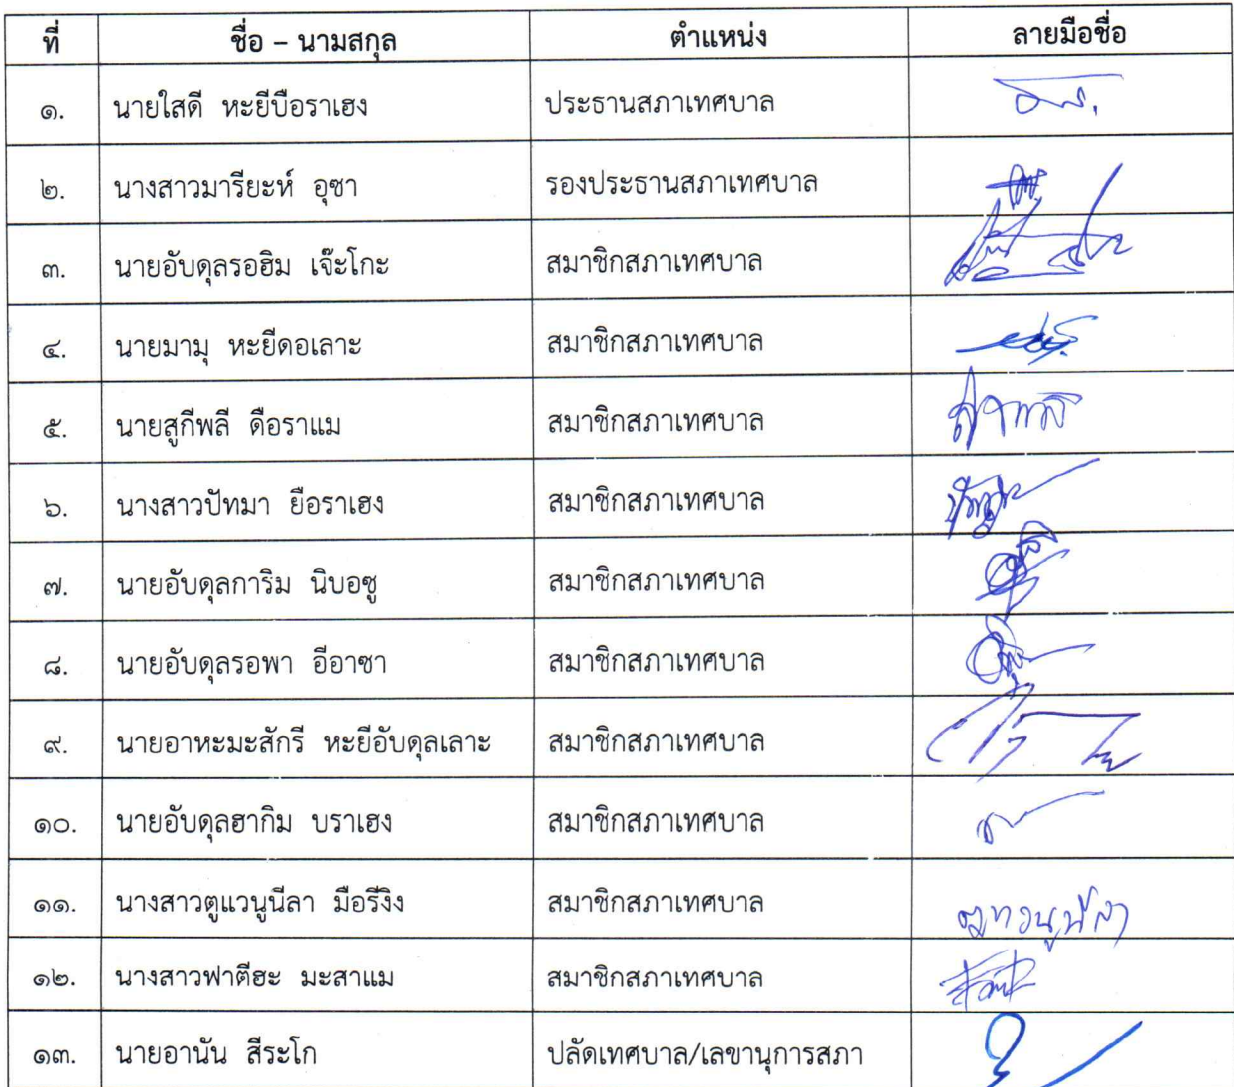 ที่ ชื่อ – นามสกุล ตำแหน่ง ลายมือชื่อ
๑. นายใสดี หะยีบือราเฮง ประธานสภาเทศบาล
๒. นางสาวมารียะห์ อุซา รองประธานสภาเทศบาล
๓. นายอับดุลรอฮิม เจ๊ะโกะ สมาชิกสภาเทศบาล
๔. นายมามุ หะยีดอเลาะ สมาชิกสภาเทศบาล
๕. นายสูกีพลี ดือราแม สมาชิกสภาเทศบาล
๖. นางสาวปัทมา ยือราเฮง สมาชิกสภาเทศบาล
๗. นายอับดุลการิม นิบอซู สมาชิกสภาเทศบาล
๘. นายอับดุลรอพา อีอาซา สมาชิกสภาเทศบาล
๙. นายอาหะมะสักรี หะยีอับดุลเลาะ สมาชิกสภาเทศบาล
๑๐. นายอับดุลฮากิม บราเฮง สมาชิกสภาเทศบาล
๑๑. นางสาวตูแวนูนีลา มือรีงิง สมาชิกสภาเทศบาล
๑๒. นางสาวฟาตีฮะ มะสาแม สมาชิกสภาเทศบาล
๑๓. นายอานัน สีระโก ปลัดเทศบาล/เลขานุการสภา